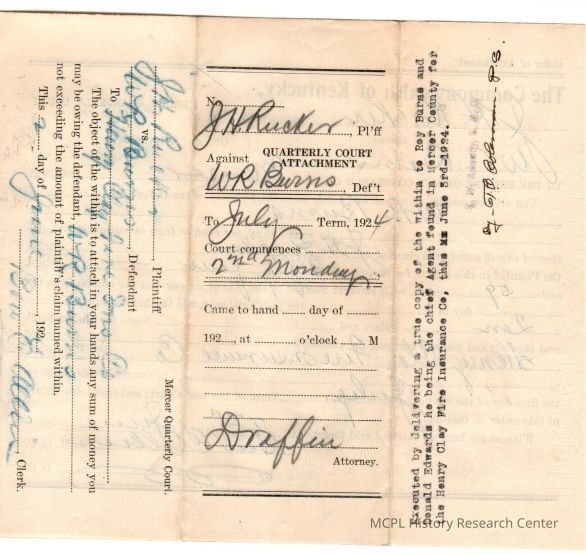 Mercer Quarterly Court.
J H Rucker Plaintiff
vs.
W R Burns Defendant
To Henry Clay Fire Ins Co
The object of the within is to attach in your hands any sum of money you
may be owing the defendant, W R Burns
not exceeding the amount of plaintiff's claim named within.
This 2 day of June 1924
Clerk.
No
J H Rucker, Pl'ff
Against QUARTERLY COURT
ATTACHMENT
W R Burns, Def't
To July Term, 1924
Court commences
2nd Monday
Came to hand day of
192 , at o'clock M
Draffin
Attorney.
Executed by delivering a true copy of the within to Roy Burns and
Donald Edwards he being the chief Agent found in Mercer County for
the Henry Clay Fire Insurance Co, this June 3rd-1924.
By D.S.
MCPL History Research Center